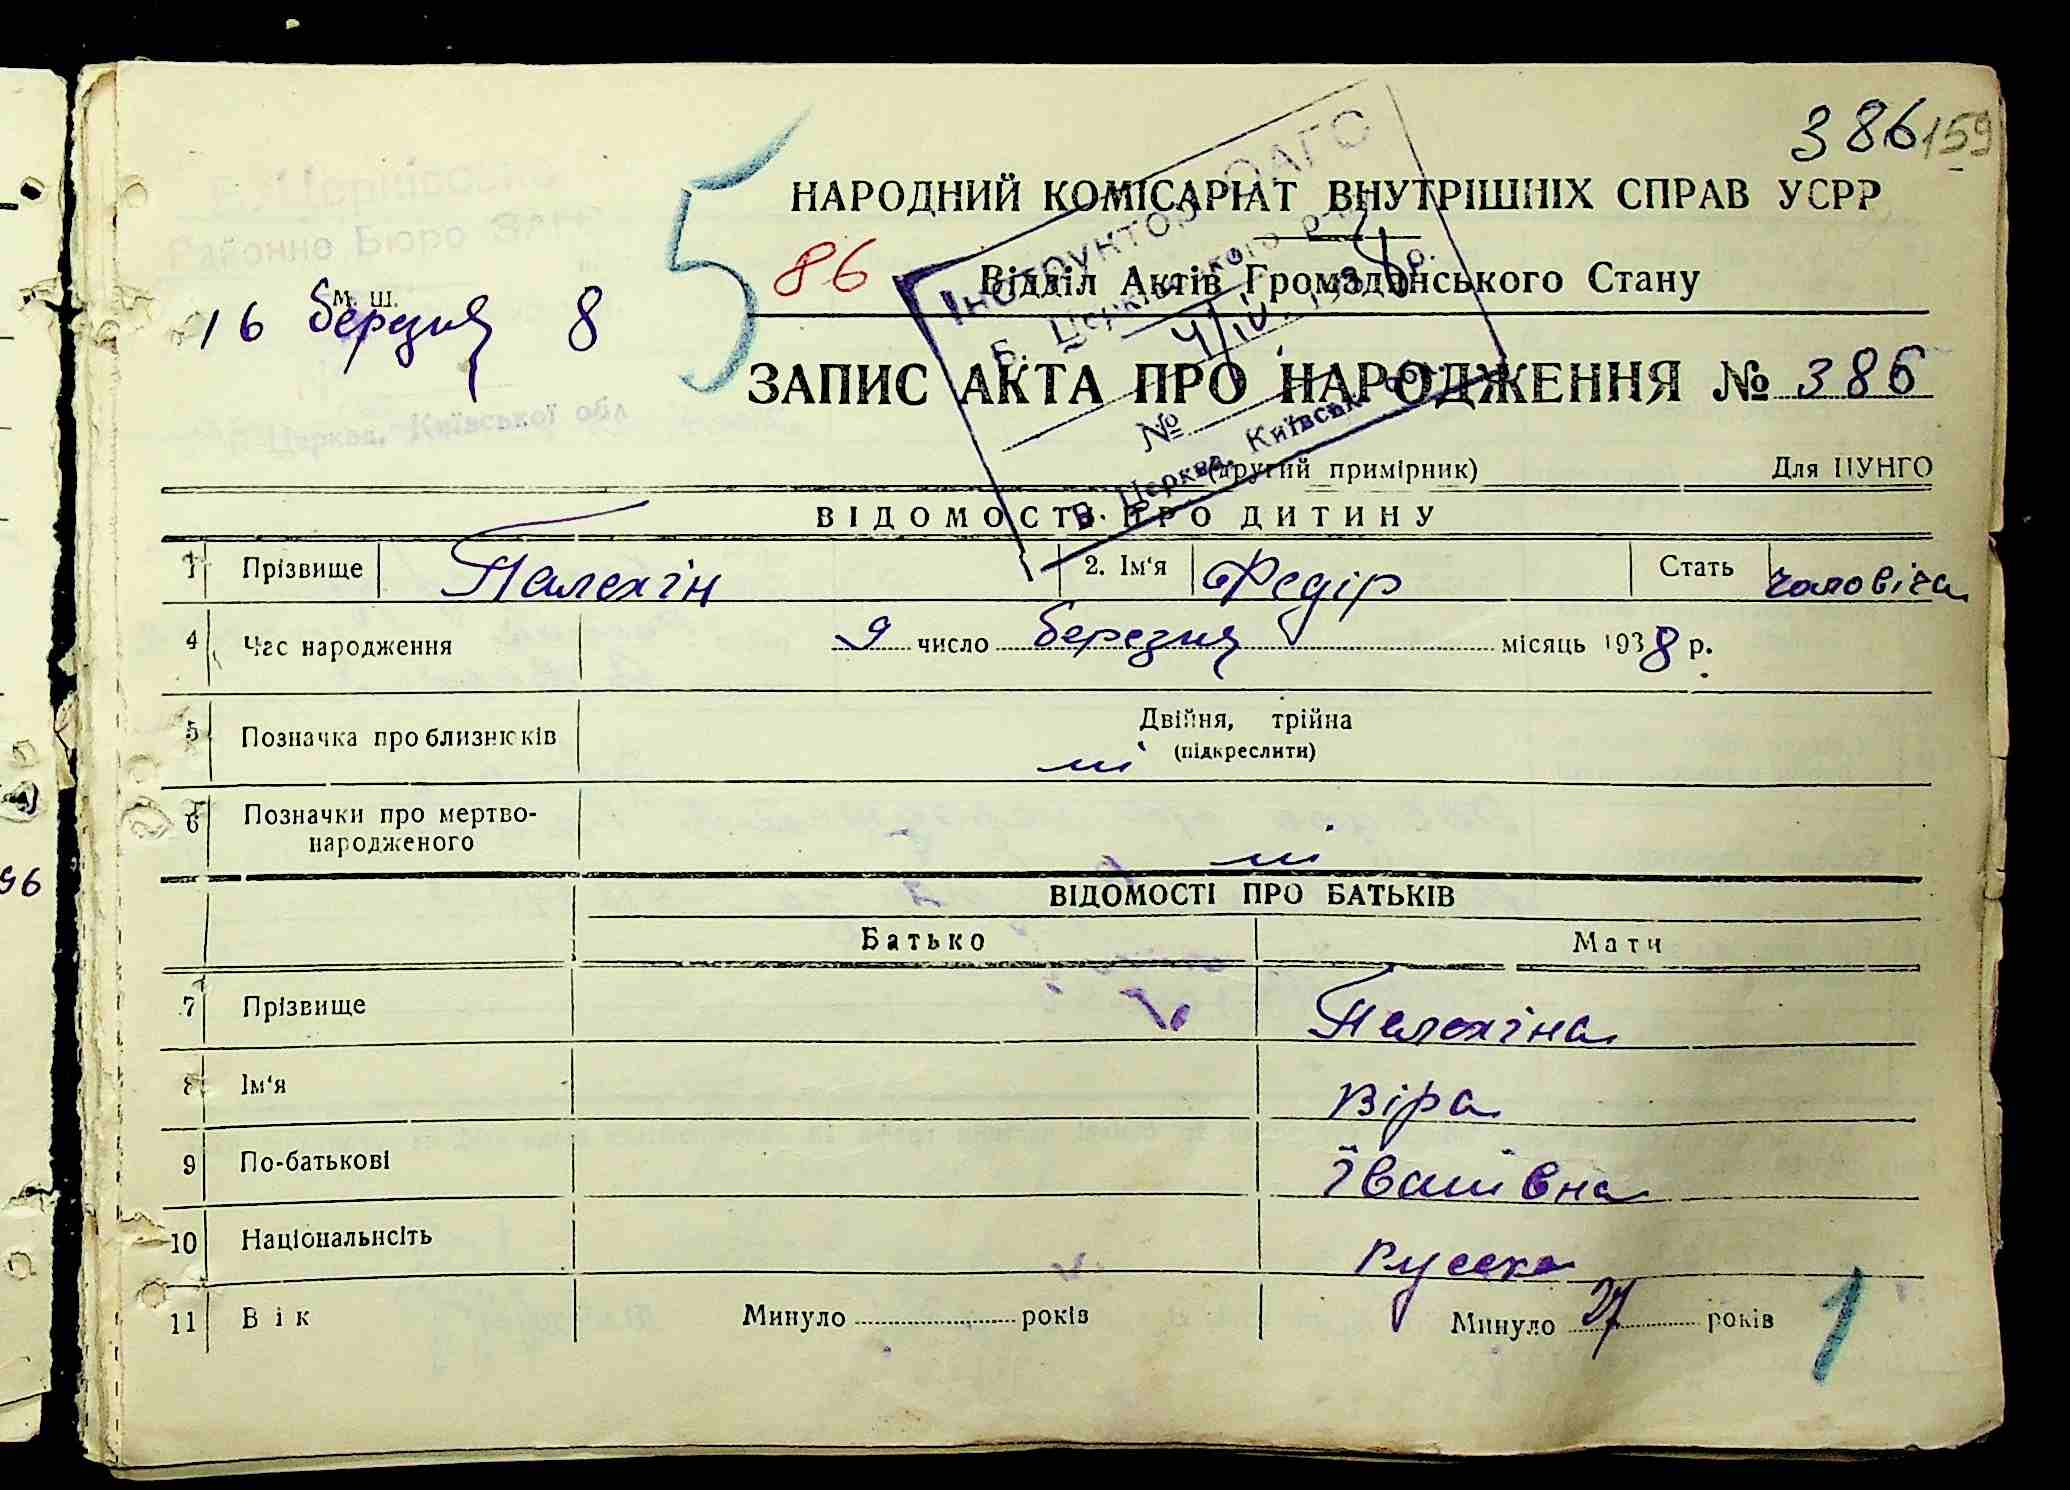 386 159
НАРОДНИЙ КОМІСАРІАТ ВНУТРІШНІХ СПРАВ УСРР
5 86 Відділ Актів Громадянського Стану
М. Ш.
16 березня 8
ЗАПИС АКТА ПРО НАРОДЖЕННЯ № 386
(другий примірник) Для ЦУНГО
Інструктор ЗАГС
Б. Церківського р-ну
4/IV 1938 р.
№
Б. Церква, Київської обл.
ВІДОМОСТІ ПРО ДИТИНУ
1 Прізвище Палехін 2. Ім'я Федір Стать чоловіча
4 Час народження 9 число березня місяць 1938 р.
5 Позначка про близнюків Двійня, трійна
(підкреслити)
ні
6 Позначки про мертво-
народженого ні
ВІДОМОСТІ ПРО БАТЬКІВ
Батько Мати
7 Прізвище Палехіна
8 Ім'я Віра
9 По-батькові Іванівна
10 Національнсіть руська
11 Вік Минуло років Минуло 27 років
1
96